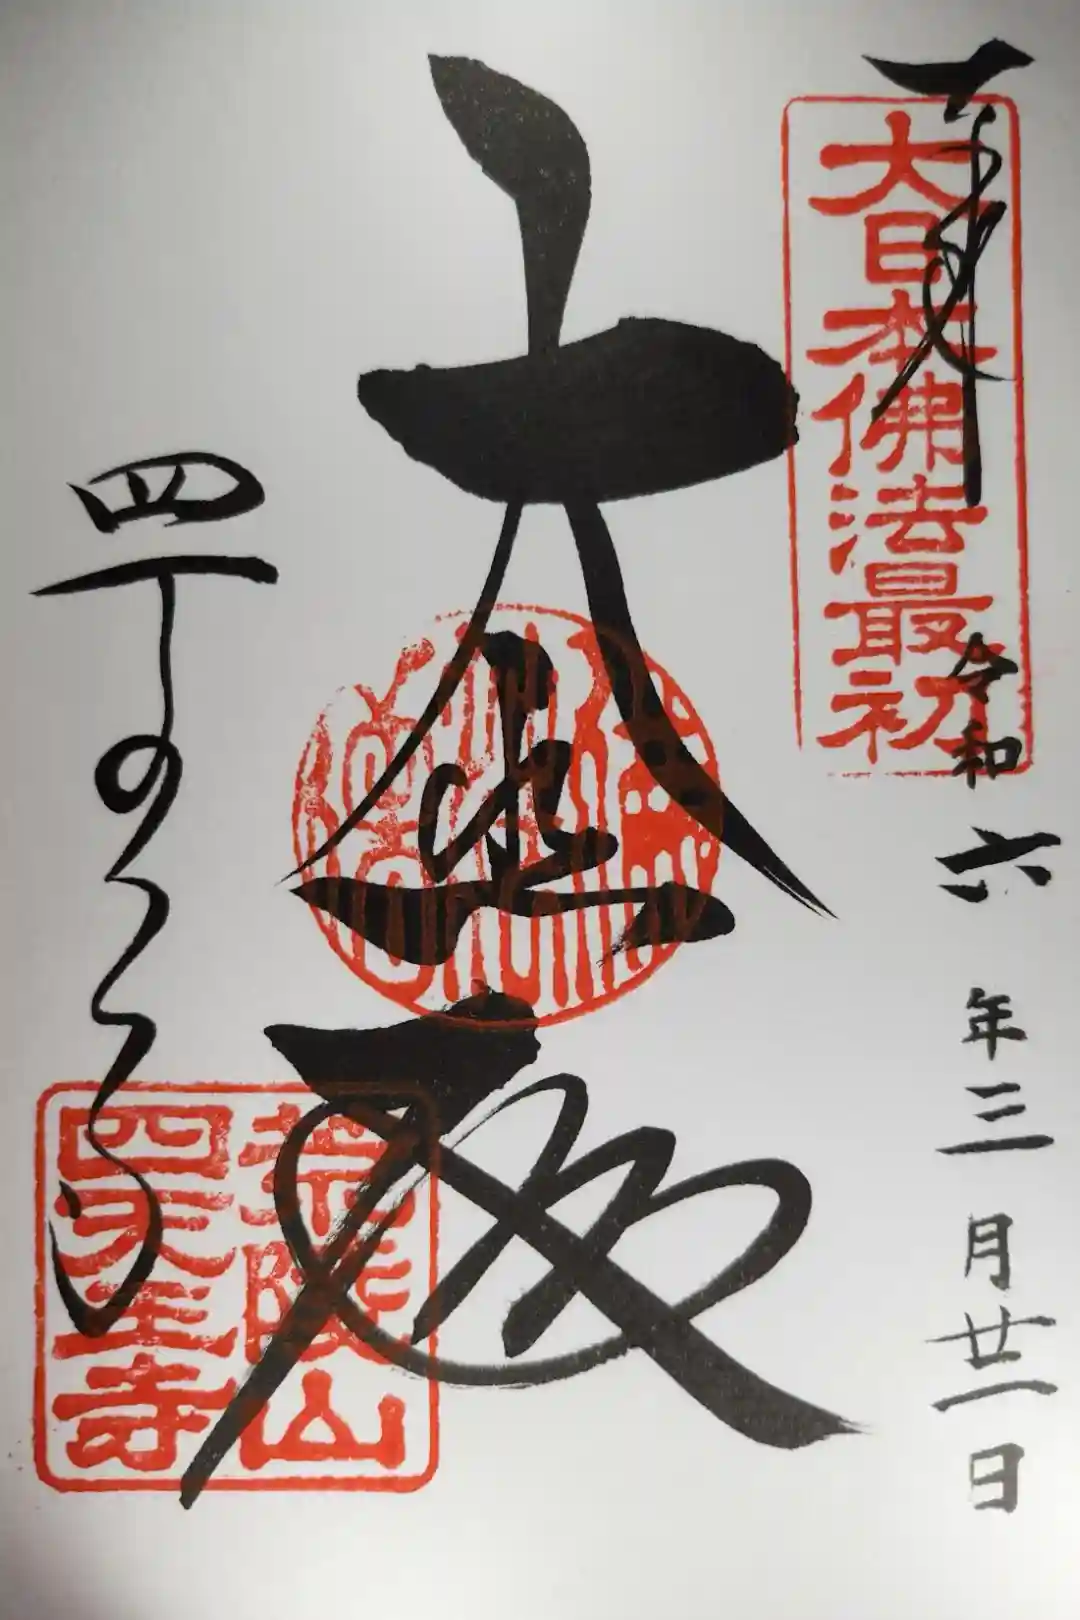 奉拝
大日本佛法最初
令和六年三月廿一日
大悲殿
四天王寺
荒陵山
四天王寺